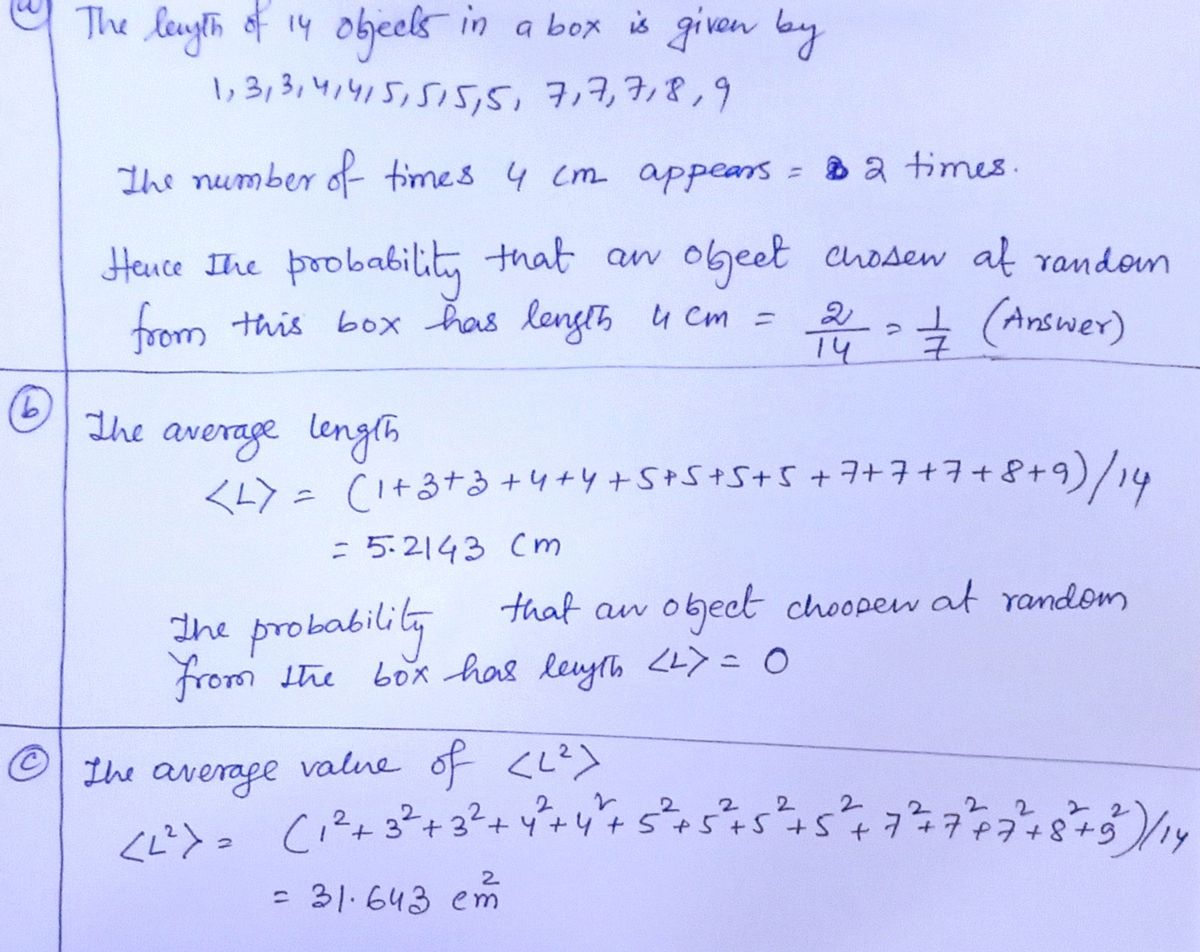 (a) The length of 14 objects in a box is given by
1, 3, 3, 4, 4, 5, 5, 5, 5, 7, 7, 7, 8, 9
The number of times 4 cm appears = 2 times.
Hence the probability that an object chosen at random
from this box has length 4 cm = 2/14 = 1/7 (Answer)
(b) The average length
<L> = (1+3+3+4+4+5+5+5+5+7+7+7+8+9)/14
= 5.2143 cm
The probability that an object choosen at random
from the box has length <L> = 0
(c) The average value of <L²>
<L²> = (1²+3²+3²+4²+4²+5²+5²+5²+5²+7²+7²+7²+8²+9²)/14
= 31.643 cm²